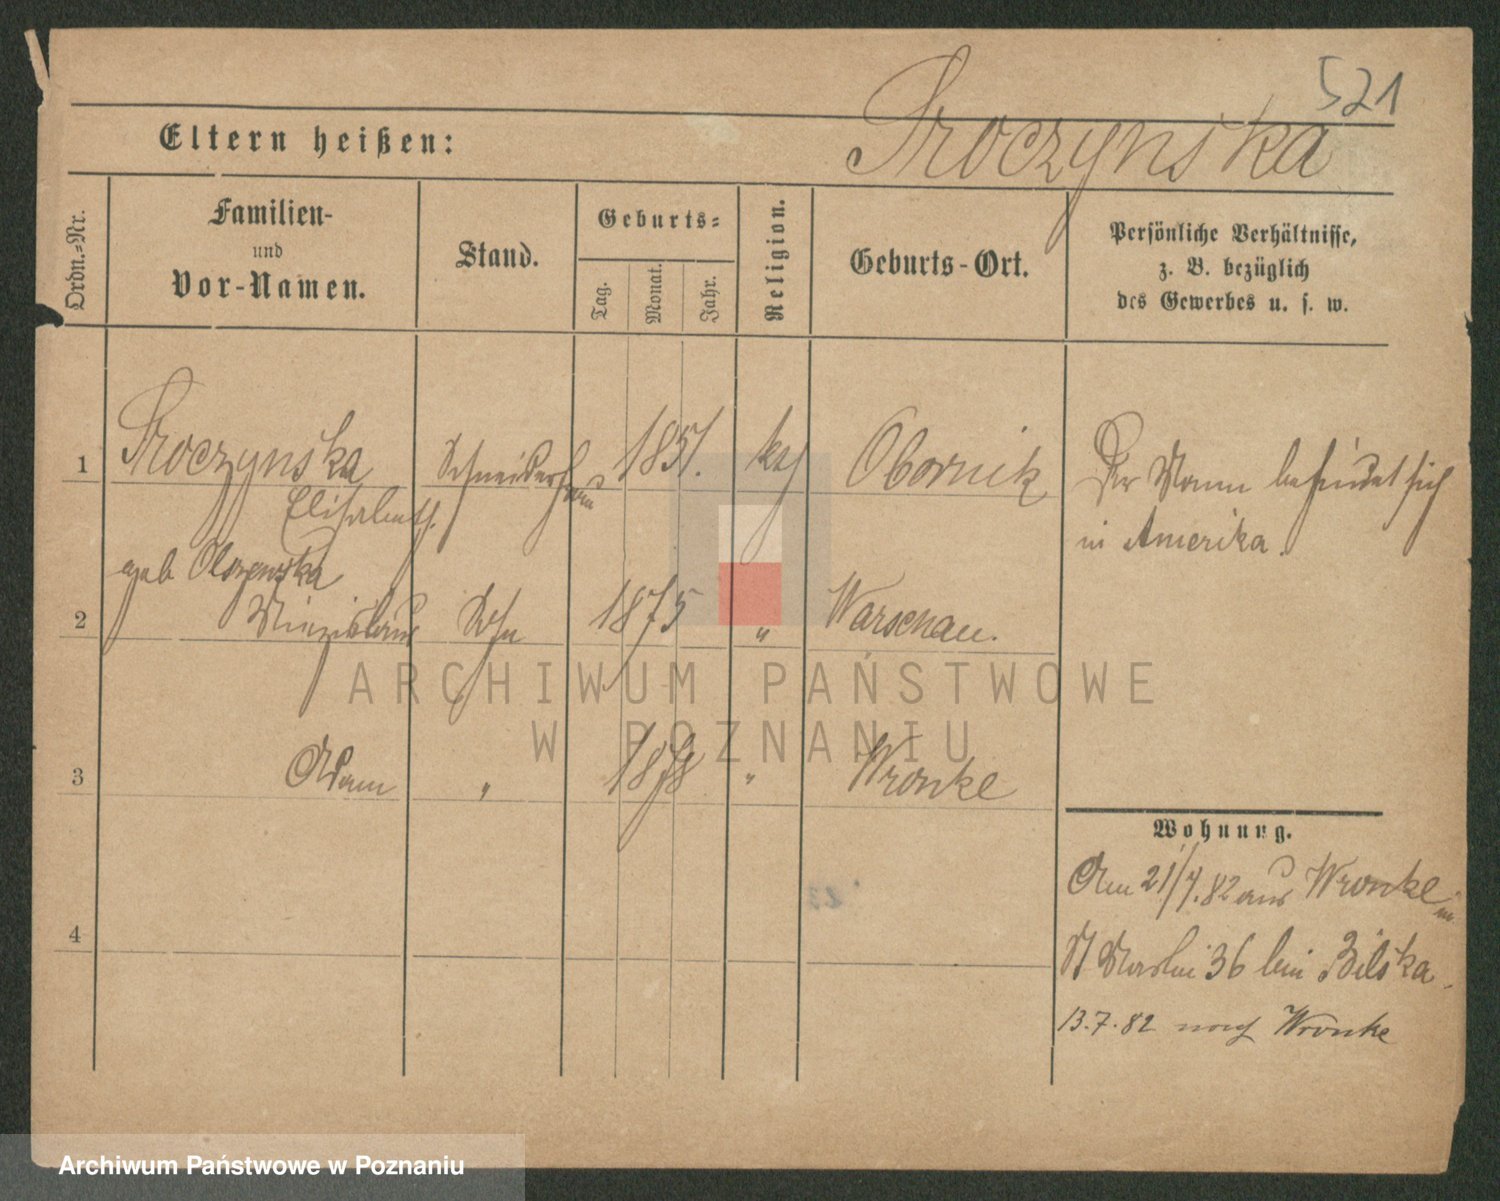 521
Eltern heißen:
Proczynska
Ordn.-Nr.
Familien-
und
Vor-Namen.
Stand.
Geburts-
Tag.
Monat.
Jahr.
Religion.
Geburts-Ort.
Persönliche Verhältnisse,
z. B. bezüglich
des Gewerbes u. s. w.
1
Proczynska
Elisabeth
geb
Schneiderfrau
1851.
kath
Obornik
Der Mann befindet sich
in Amerika.
2
Miecislaus
Sohn
1875
"
Warschau.
3
Adam
"
1878
"
Wronke
4
Wohnung.
Am 21/7.82 aus Wronke in
St Martin 36 bei Bilska.
13.7.82 nach Wronke
ARCHIWUM PAŃSTWOWE
W POZNANIU
Archiwum Państwowe w Poznaniu